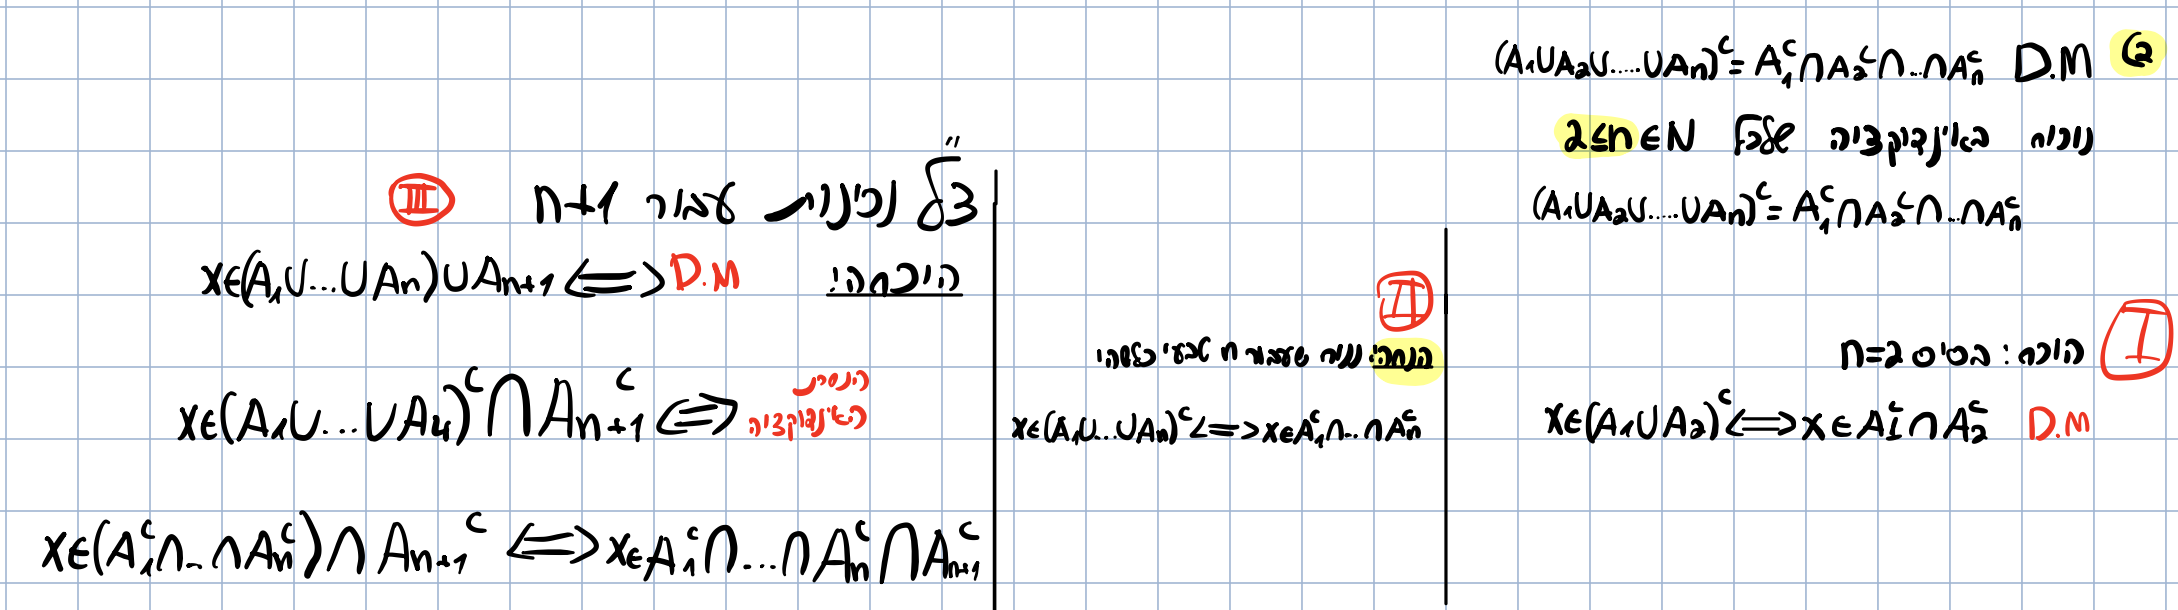 2) D.M (A₁∪A₂∪.....∪Aₙ)ᶜ = A₁ᶜ∩A₂ᶜ∩...∩Aₙᶜ
נוכיח באינדוקציה שלכל 2≤n∈N
(A₁∪A₂∪.....∪Aₙ)ᶜ = A₁ᶜ∩A₂ᶜ∩...∩Aₙᶜ
I הוכחה: בסיס n=2
D.M x∈(A₁∪A₂)ᶜ <=> x∈A₁ᶜ∩A₂ᶜ
II
הנחה: נניח שעבור n טבעי כלשהו
x∈(A₁∪...∪Aₙ)ᶜ <=> x∈A₁ᶜ∩...∩Aₙᶜ
צ"ל נכונות עבור n+1 III
הוכחה:
x∈(A₁∪...∪Aₙ)∪Aₙ₊₁ <=> D.M
x∈(A₁∪...∪A₄)ᶜ∩Aₙ₊₁ᶜ <=> הנחת האינדוקציה
x∈(A₁ᶜ∩...∩Aₙᶜ)∩Aₙ₊₁ᶜ <=> x∈A₁ᶜ∩...∩Aₙᶜ∩Aₙ₊₁ᶜ